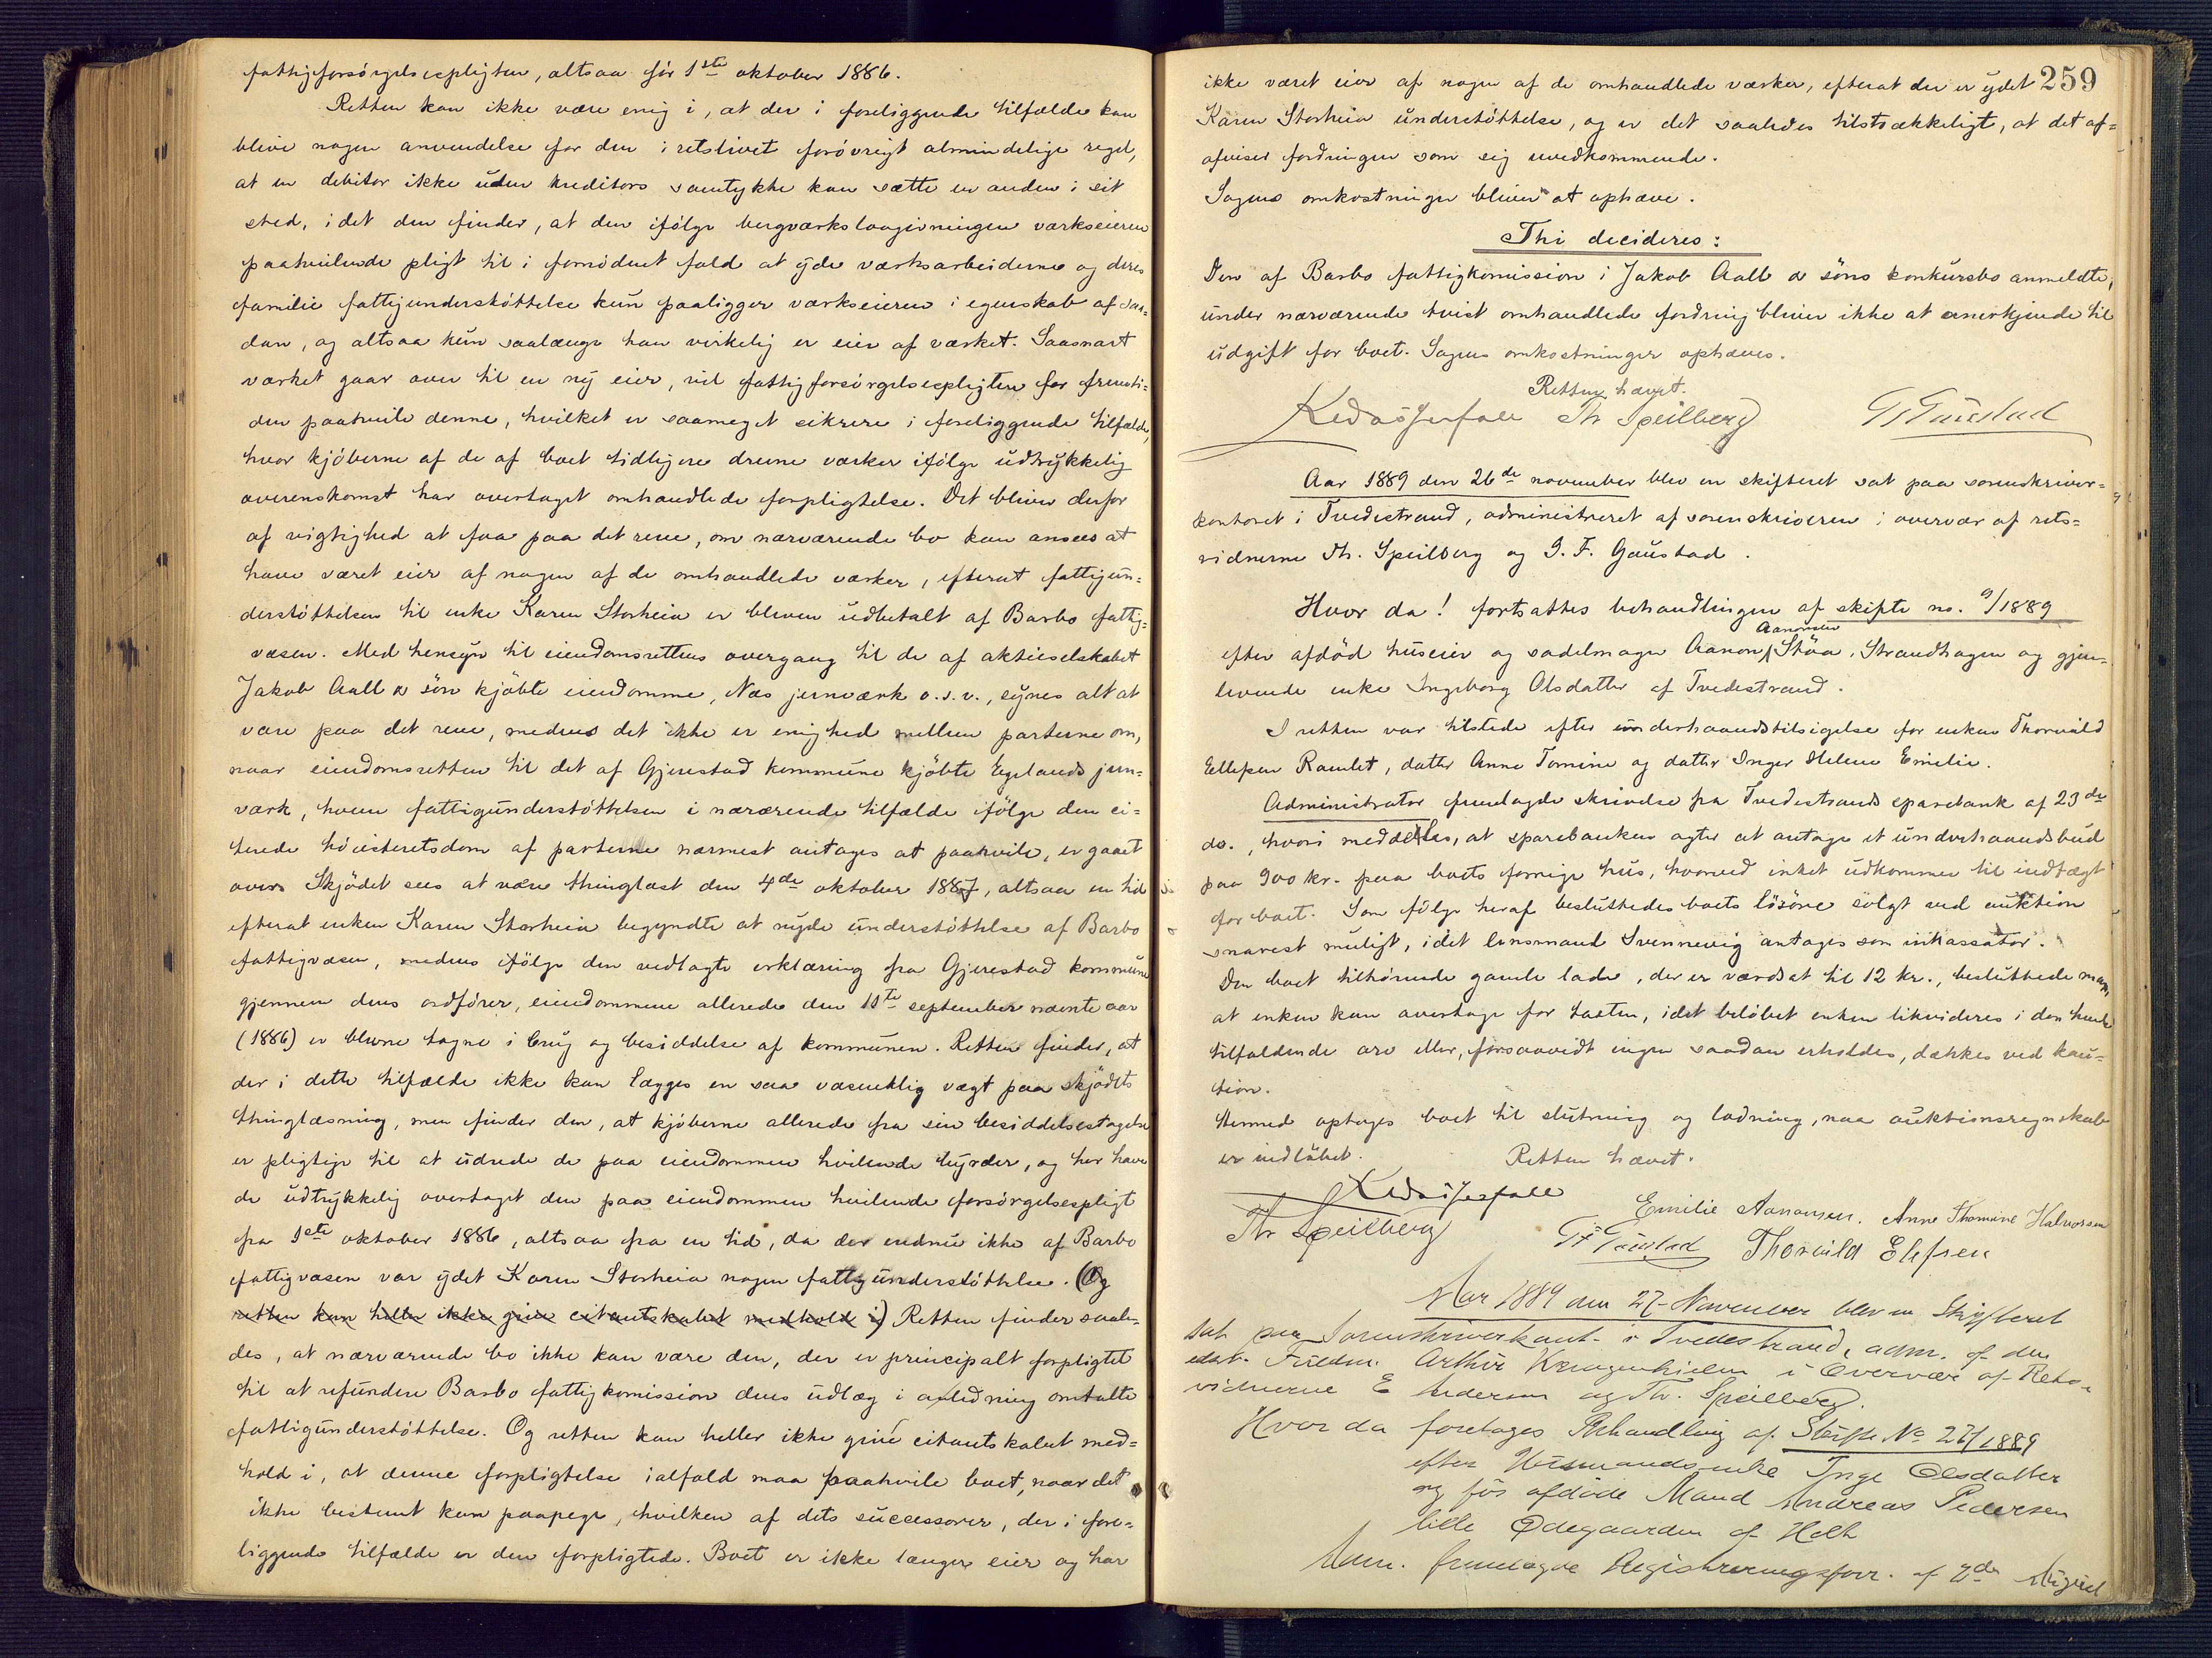 fattigforsörgelsespligten, altsaa för 1ste oktober 1886.
Retten kan ikke være enig i, at der i foreliggende tilfælde kan
blive nogen anvendelse for den i retslivet forövrigt almindelige regel,
at en debitor ikke uden kreditors samtykke kan sætte en anden i sit
sted, idet den finder, at den ifölge bergværkslovgivningen værkseieren
paahvilende pligt til i fornödent fald at yde værksarbeiderne og deres
familie fattigunderstöttelse kun paaligger værkseieren i egenskab af saa=
dan, og altsaa kun saalænge han virkelig er eier af værket. Saasnart
værket gaar over til en ny eier, vil fattigforsörgelsespligten for fremti=
den paahvile denne, hvilket er saameget sikrere i foreliggende tilfælde,
hvor kjöberne af de af boet tidligere drevne værker ifölge udtrykkelig
overenskomst har overtaget omhandlede forpligtelse. Det bliver derfor
af vigtighed at faa paa det rene, om nærværende bo kan ansees at
have været eier af nogen af de omhandlede værker, efterat fattigun=
derstöttelsen til enke Karen Storheia er bleven udbetalt af Barbo fattig=
væsen. Med hensyn til eiendomsrettens overgang til de af aktieselskabet
Jakob Aall & sön kjöbte eiendomme, Næs jernværk o.s.v., synes alt at
være paa det rene, medens det ikke er enighed mellem parterne om,
naar eiendomsretten til det af Gjerestad kommune kjöbte Egelands jern=
værk, hvem fattigunderstöttelsen i nærærende tilfælde ifölge den ci=
terede höiesteretsdom af parterne nærmest antages at paahvile, er gaaet
over. Skjödet sees at være thinglæst den 4de oktober 1887, altsaa en tid
efterat enken Karen Storheia begyndte at nyde understöttelse af Barbo
fattigvæsen, medens ifölge den vedlagte erklæring fra Gjerestad kommune
gjennem dens ordförer, eiendommene allerede den 11te september nævnte aar
(1886) er blevne tagne i brug og besiddelse af kommunen. Retten finder, at
der i dette tilfælde ikke kan lægges en saa væsentlig vægt paa skjödets
thinglæsning, men finder den, at kjöberne allerede fra sin besiddelsestagelse
er pligtige til at udrede de paa eiendommen hvilende byrder, og her have
de udtrykkelig overtaget den paa eiendommen hvilende forsörgelsespligt
fra 1ste oktober 1886, altsaa fra en tid, da der endnu ikke af Barbo
fattigvæsen var ydet Karen Storheia nogen fattigunderstöttelse. (Og
retten kan heller ikke give citantskabet medhold i) Retten finder saale=
des, at nærværende bo ikke kan være den, der er principalt forpligtet
til at refundere Barbo fattigkomission dens udlæg i anledning omtalte
fattigunderstöttelse. Og retten kan heller ikke give citantskabet med=
hold i, at denne forpligtelse ialfald maa paahvile boet, naar det
ikke bestemt kan paapege, hvilken af dets successorer, der i fore=
liggende tilfælde er den forpligtede. Boet er ikke længere eier og har
259
ikke været eier af nogen af de omhandlede værker, efterat der er ydet
Karen Storheia understöttelse, og er det saaledes tilstrækkeligt, at det af=
afviser fordringen som sig uvedkommende.
Sagens omkostninger bliver at ophæve.
Thi decideres:
Den af Barbo fattigkomission i Jakob Aall & söns konkursbo anmeldte,
under nærværende tvist omhandlede fordring bliver ikke at anerkjende til
udgift for boet. Sagens omkostninger ophæves.
Retten hævet.
Th Speilberg G F Gaustad
Aar 1889 den 26de november blev en skifteret sat paa sorenskriver=
kontoret i Tvedestrand, administreret af sorenskriveren i overvær af rets=
vidnerne Th. Speilberg og G. F. Gaustad.
Hvor da! fortsattes behandlingen af skifte no. 9/1889
efter afdöd huseier og sadelmager Aanon Aanonsen Stöa, Strandhagen og gjen=
levende enke Ingeborg Olsdatter af Tvedestrand.
I retten var tilstede efter underhaandstilsigelse for enken Thorvald
Ellefsen Ramlet, datter Anne Tomine og datter Inger Helene Emilie.
Administrator fremlagde skrivelse fra Tvedestrands sparebank af 23de
ds., hvori meddeles, at sparebanken agter at antage et underhaandsbud
paa 900 kr. paa boets forrige hus, hvorved intet udkommer til indtægt
for boet. Som fölge heraf besluttedes boets lösöre solgt ved auktion
snarest muligt, idet lensmand Svennevig antages som inkassator.
Den boet tilhörende gamle lade, der er værdsat til 12 kr., besluttede man,
at enken kan overtage for taxten, idet belöbet enten likvideres i den hende
tilfaldende arv eller, forsaavidt ingen saadan erholdes, dækkes ved kau=
tion.
Hermed optages boet til slutning og lodning, naar auktionsregnskab
er indlöbet.
Retten hævet.
Th Speilberg G F Gaustad Emilie Aanonsen. Anne Thomine Halvorsen
Thorvild Elefsen
Aar 1889 den 27 November blev en Skifteret
sat paa Sorenskriverkont. i Tvedestrand, adm. af den
edsv. Fuldm. Arthur Krangenhielm i Overvær af Rets=
vidnerne E Andersen og Th. Speilberg.
Hvor da foretages Behandling af Skifte No 27/1889
efter Husmandsenke Inge Olsdatter
og för afdöde Mand Andreas Pedersen
lille Ødegaarden af Holt
Adm. fremlagde Registreringsforr. af 2de August